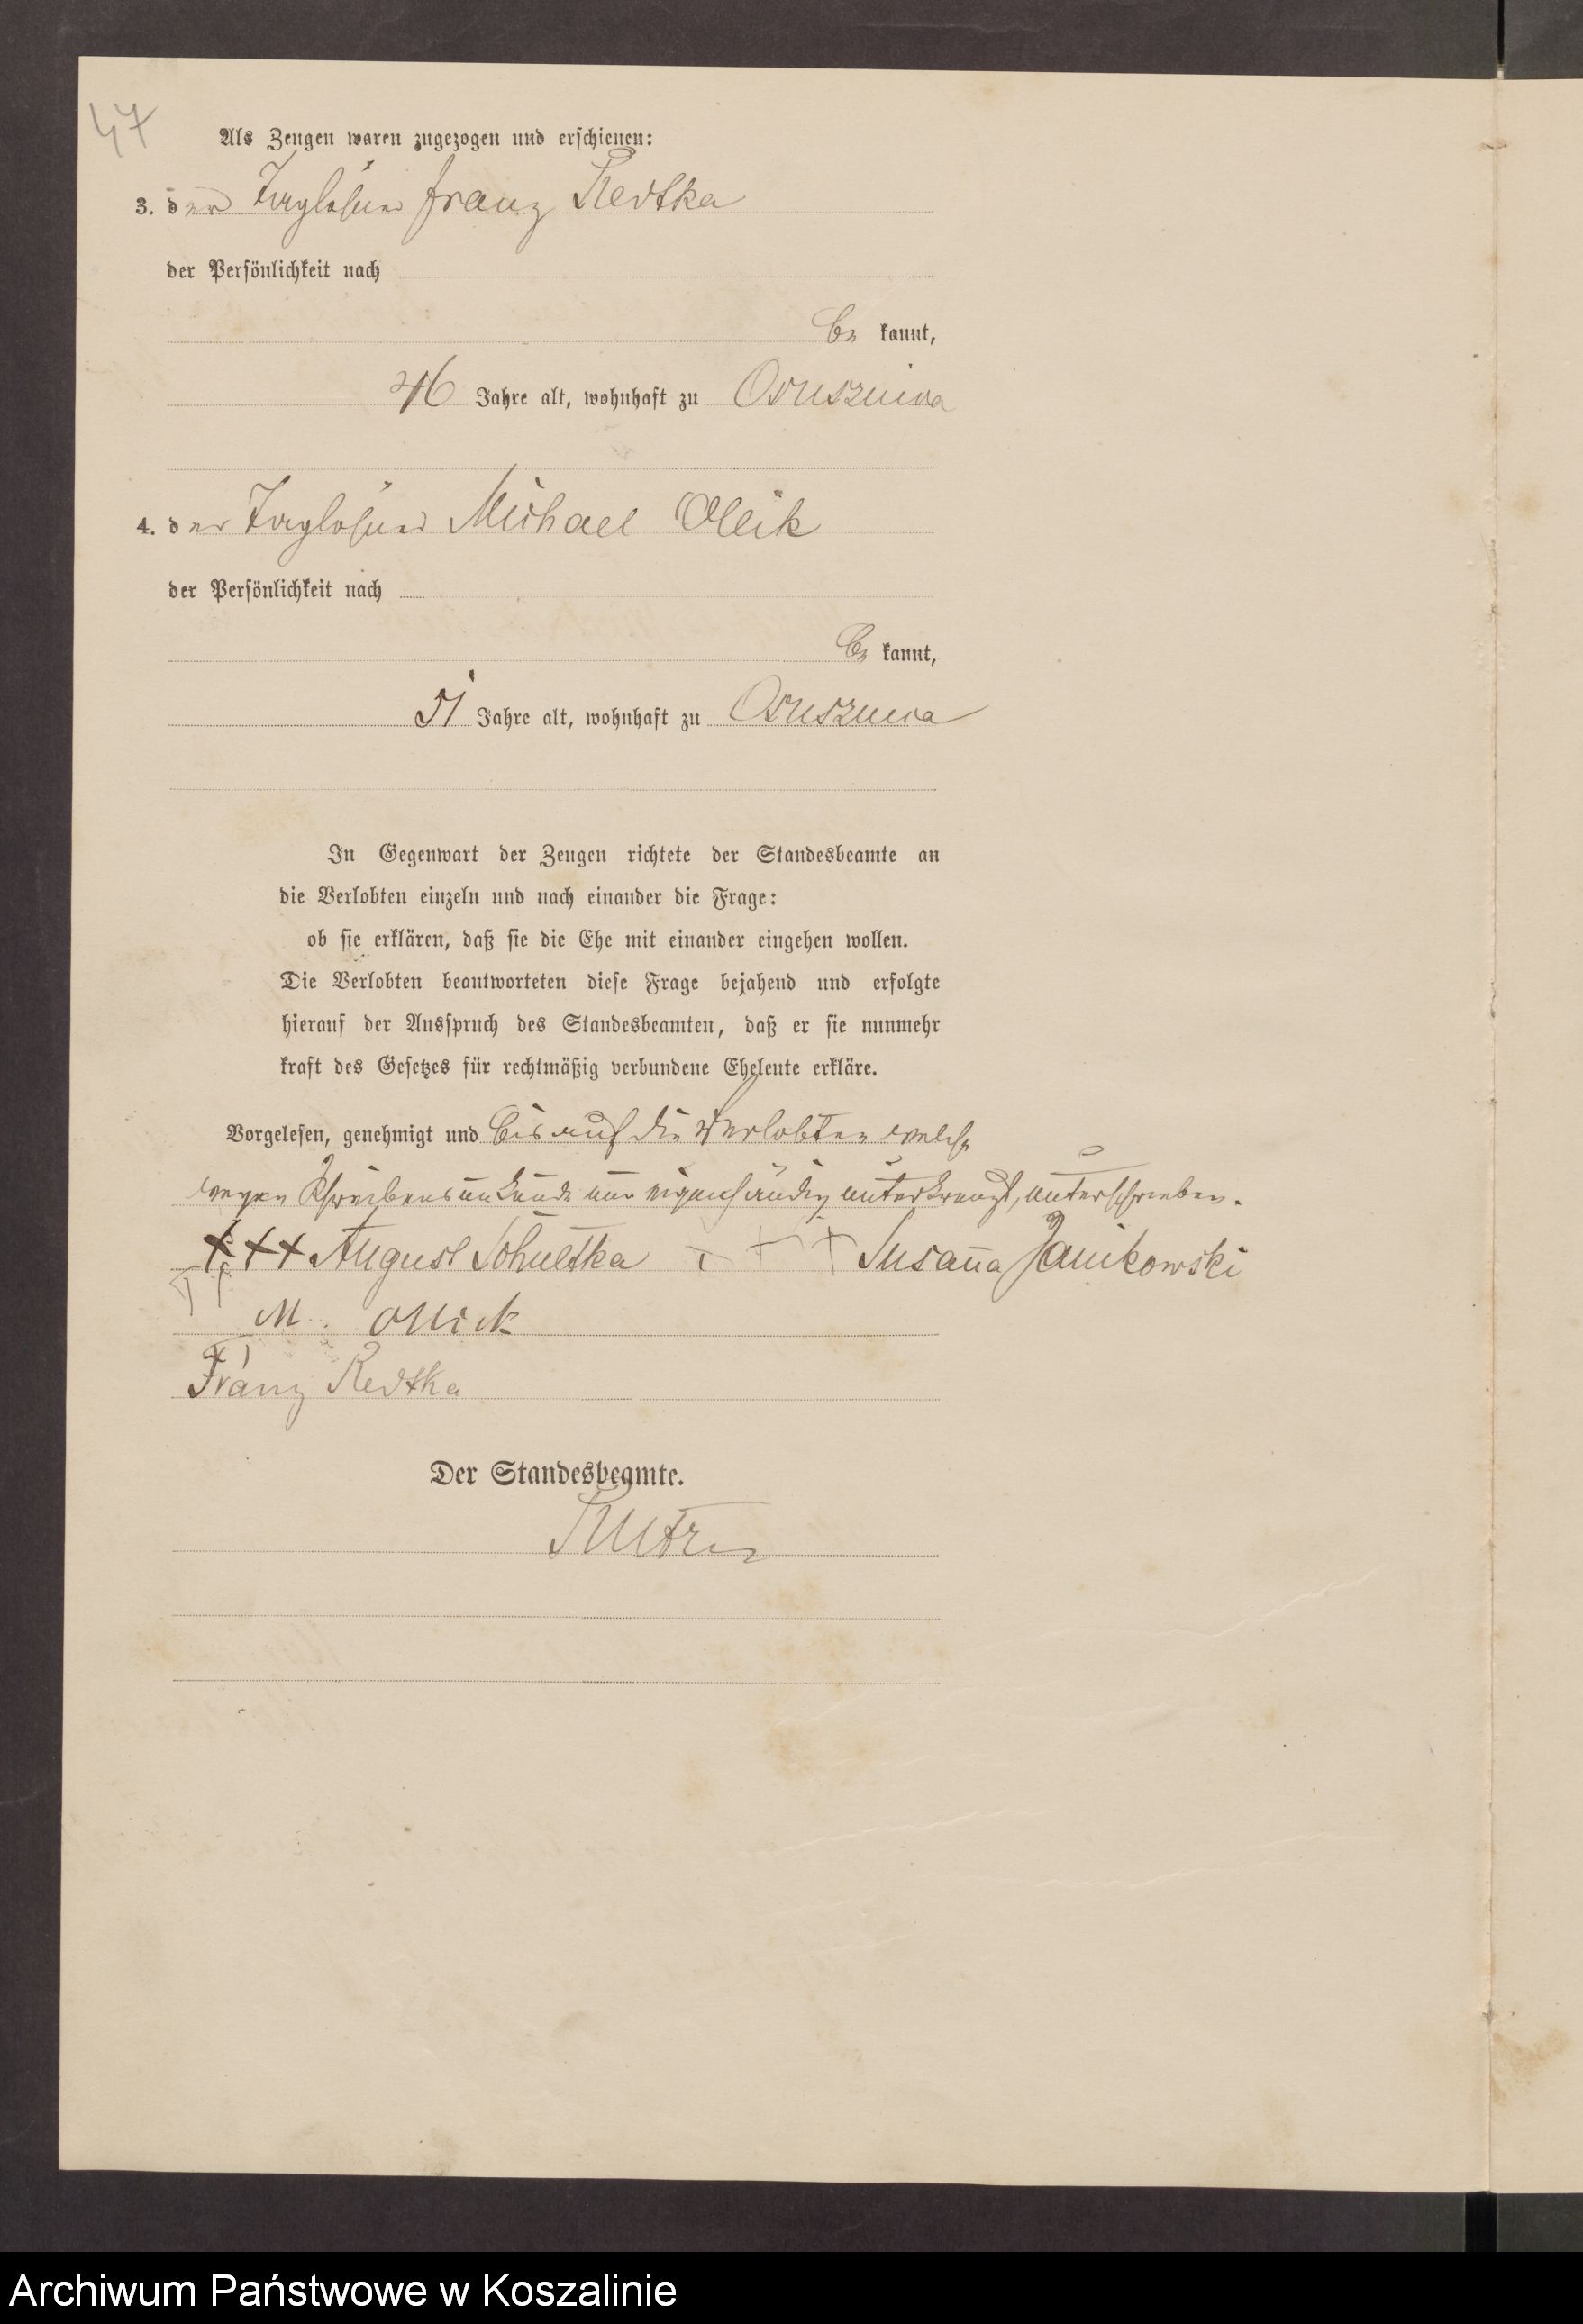 47
Als Zeugen waren zugezogen und erschienen:
3. der Taglöhner Franz Redtka
der Persönlichkeit nach
be kannt,
46 Jahre alt, wohnhaft zu Osusznica
4. der Taglöhner Michael Ollik
der Persönlichkeit nach
be kannt,
51 Jahre alt, wohnhaft zu Osusznica
In Gegenwart der Zeugen richtete der Standesbeamte an
die Verlobten einzeln und nach einander die Frage:
ob sie erklären, daß sie die Ehe mit einander eingehen wollen.
Die Verlobten beantworteten diese Frage bejahend und erfolgte
hierauf der Ausspruch des Standesbeamten, daß er sie nunmehr
kraft des Gesetzes für rechtmäßig verbundene Eheleute erkläre.
Vorgelesen, genehmigt und bis auf die Verlobten welche
wegen Schreibensunkunde nur eigenhändig unterkreuzt, unterschrieben.
+++ August Schultka +++ Susanna Janikowski
M. Ollick
Franz Redtka
Der Standesbeamte.
Archiwum Państwowe w Koszalinie